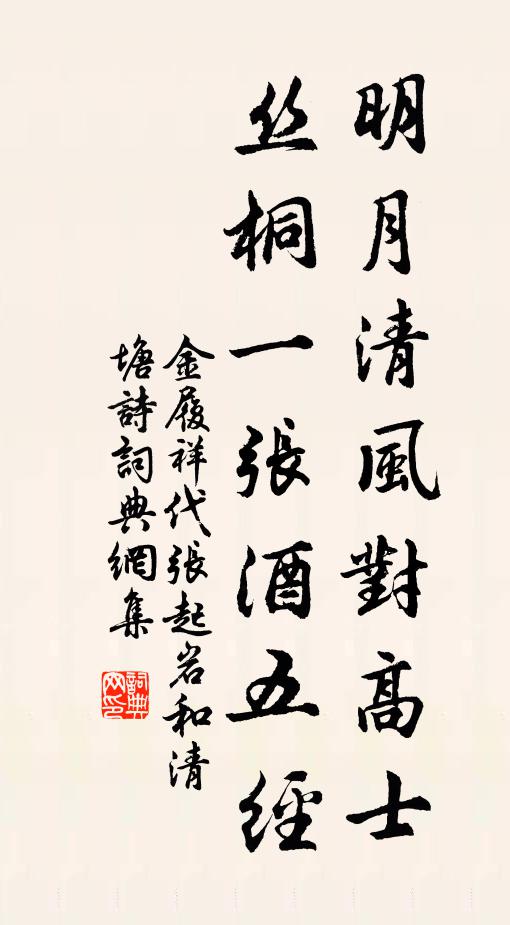 明月清風對高士
丝桐一張酒五經
金履祥代張起岩和清
塘詩詞典網集
詞典
网印